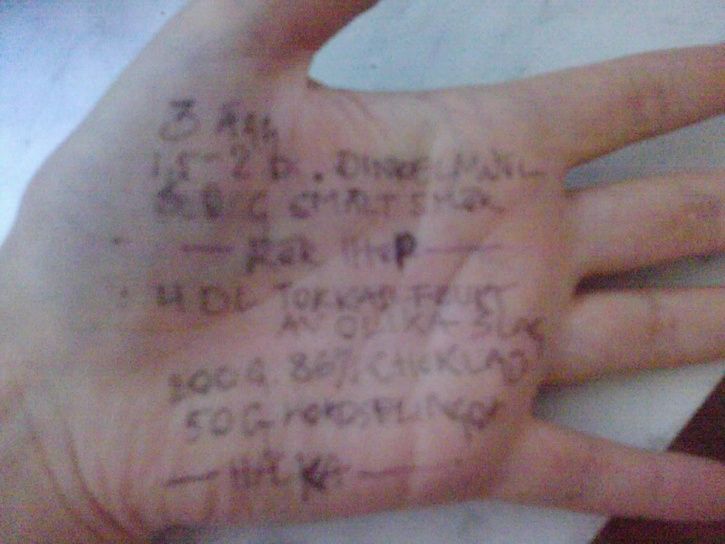 3 ÄGG
1,5-2 DL. DINKELMJÖL
SMÄLT SMÖR
— RÖR IHOP —
4 DL TORKAD FRUKT
AV OLIKA SLAG
200 G. 86% CHOKLAD
50 G KOKOSFLINGOR
— HACKA —